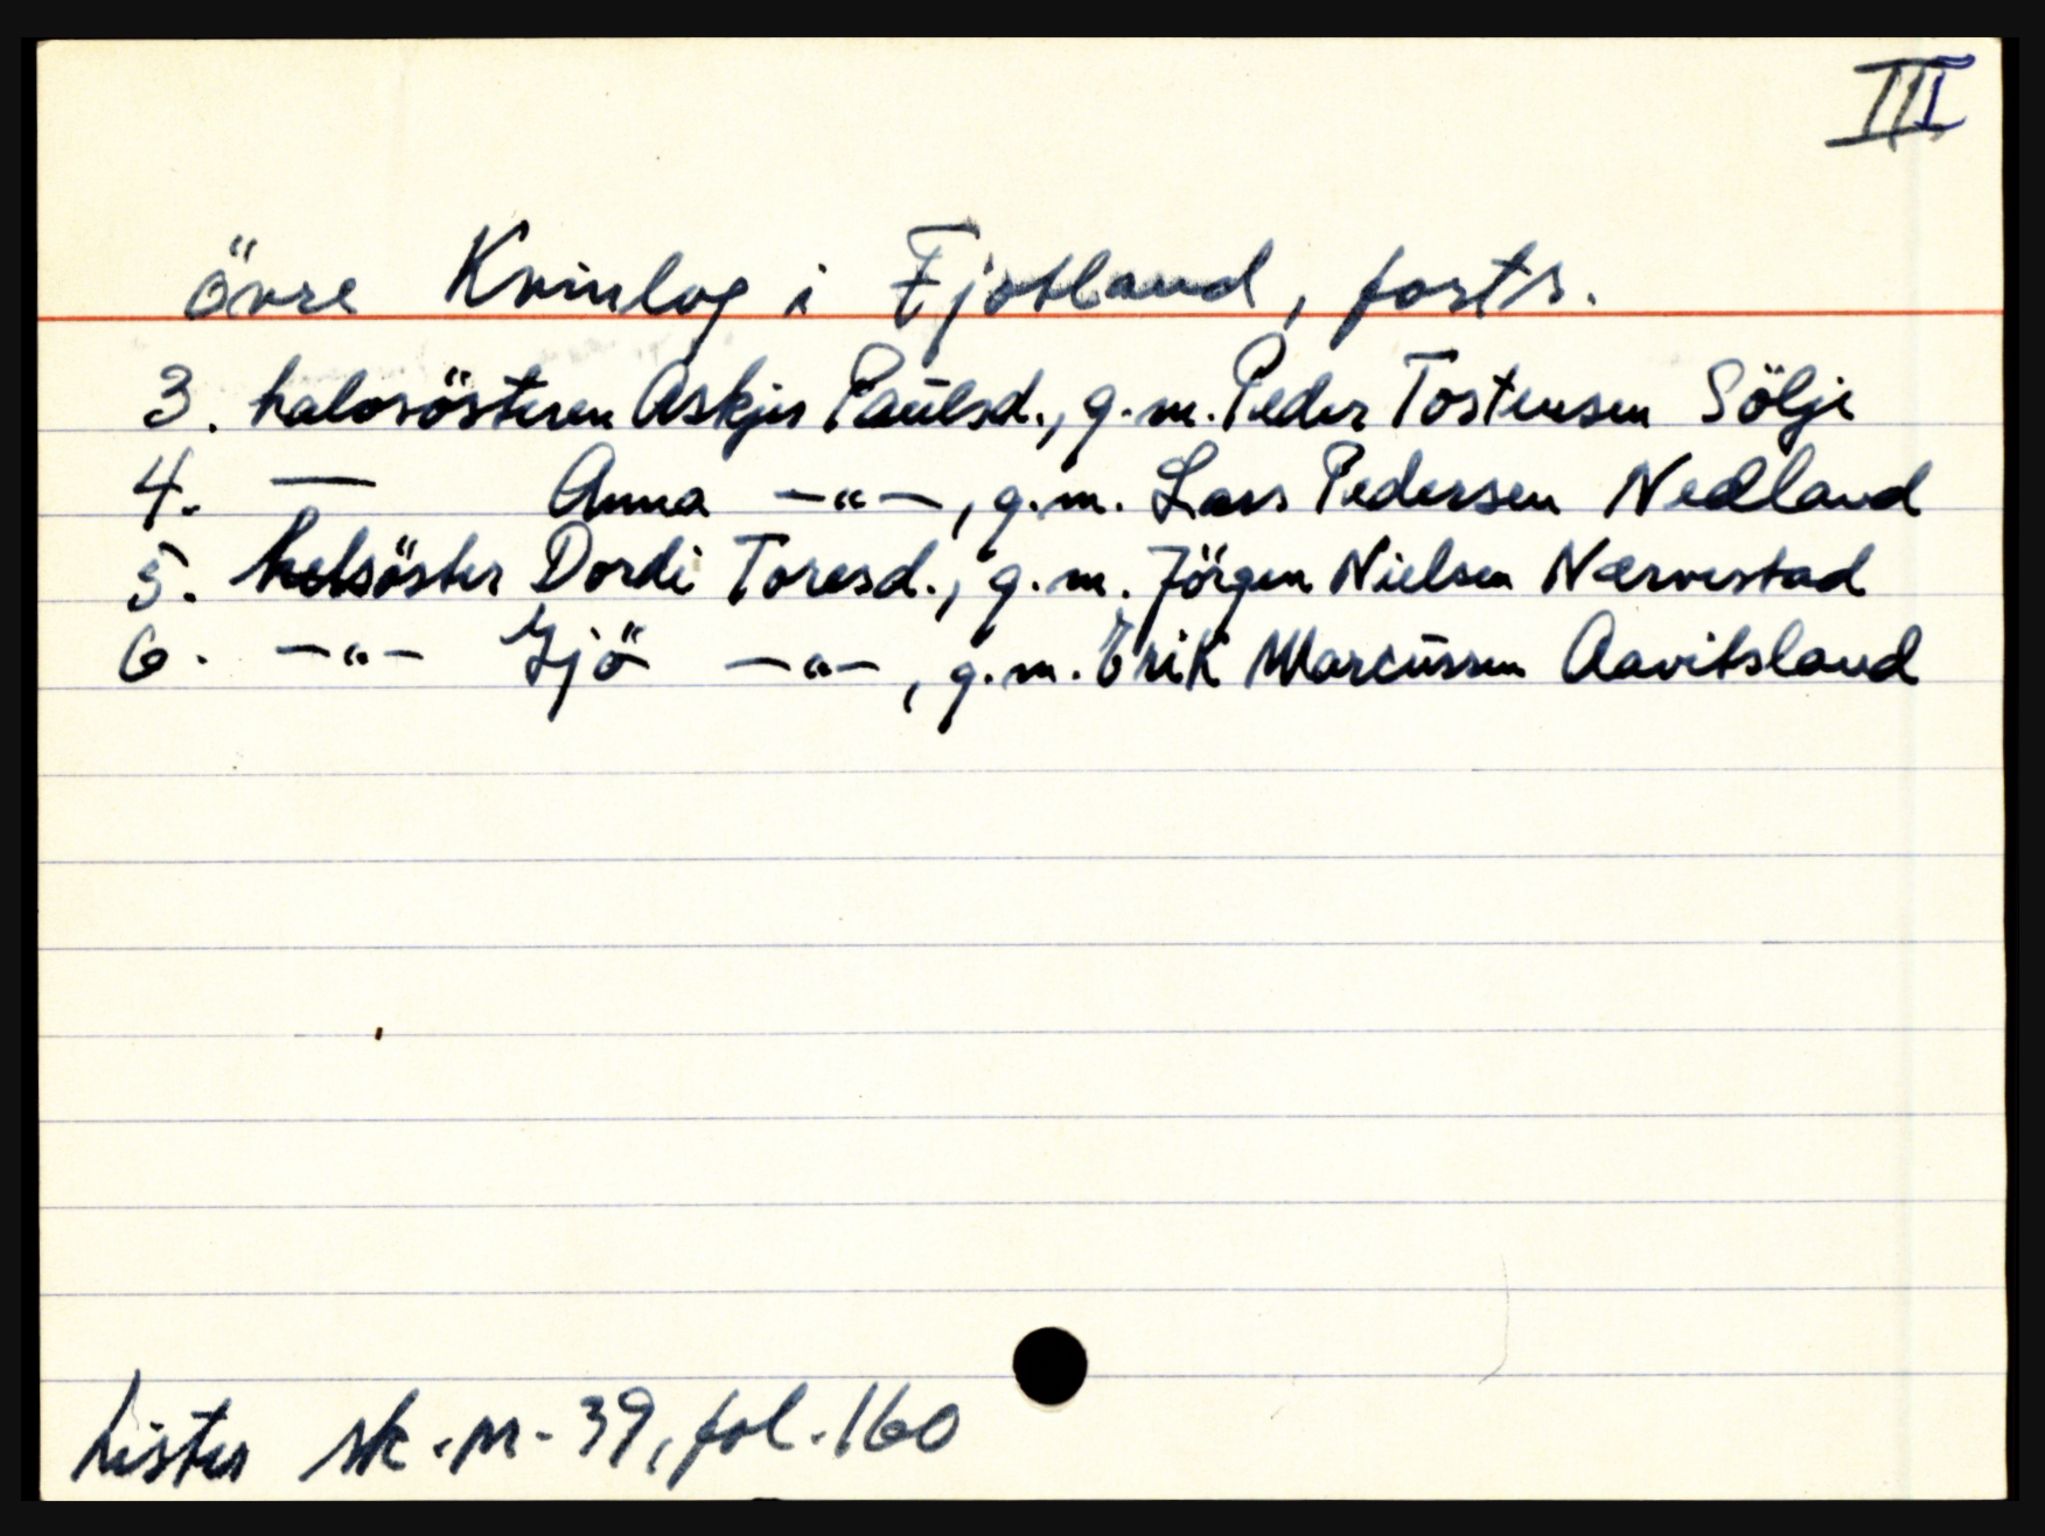 III
övre Kvinlog i Fjotland, forts.
3. halvsösteren Askjer Paulsd., g.m. Peder Tostensen Sölje
4. — Anna —"—, g.m. Lars Pedersen Nedland
5. helsöster Dordi Toresd., g.m. Jörgen Nielsen Nærvestad
6. —"— Gjö —"—, g.m. Erik Marcussen Aavitsland
Lister sk.pr. 39, fol. 160